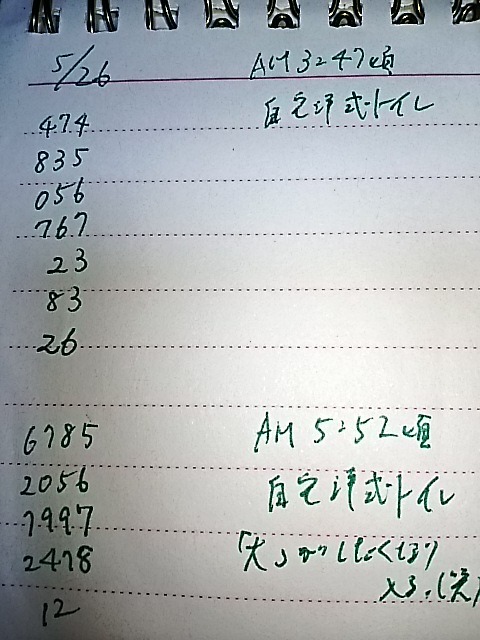 5/26 AM 3:47頃
474 自宅洋式トイレ
835
056
767
23
83
26
6785 AM 5:52頃
2056 自宅洋式トイレ
7997
2478 「大」がしたくなり
12 (笑)